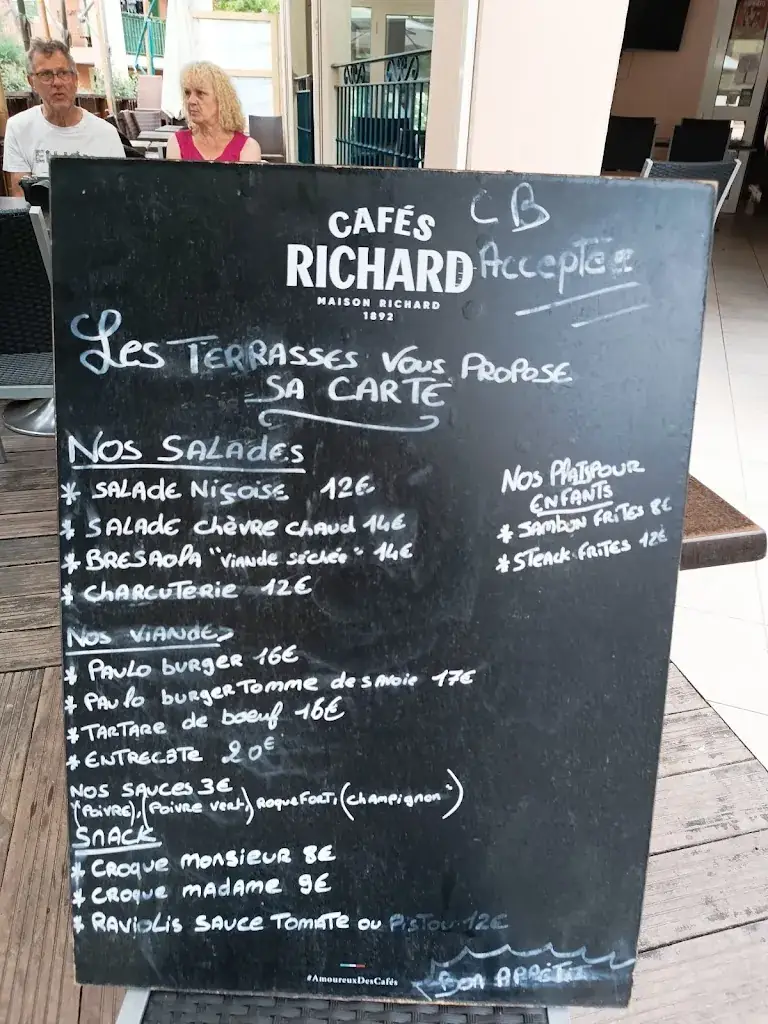 CAFÉS
RICHARD
MAISON RICHARD
1892
CB
Acceptée
Les TERRASSES Vous PROPOSE
SA CARTE
Nos SALADES
* SALADE Niçoise 12€
* SALADE chèvre chaud 14€
* BRESAOPA "Viande séchée" 14€
* CHARCUTERIE 12€
Nos Plats pour
ENFANTS
* SAMBON FRITES 8€
* STEACK FRITES 12€
Nos VIANDES
* PAULO burger 16€
* PAULO burger Tomme de savoie 17€
* TARTARE de boeuf 16€
* ENTRECÔTE 20€
NOS SAUCES 3€
(POIVRE), (Poivre vert) ROQUEFORT, (champignon")
SNACK
* CROQUE MONSIEUR 8€
* CROQUE MADAME 9€
* RAVIOLIS SAUCE TOMATE OU PISTOU 12€
BON APPÉTIT
#AmoureuxDesCafés